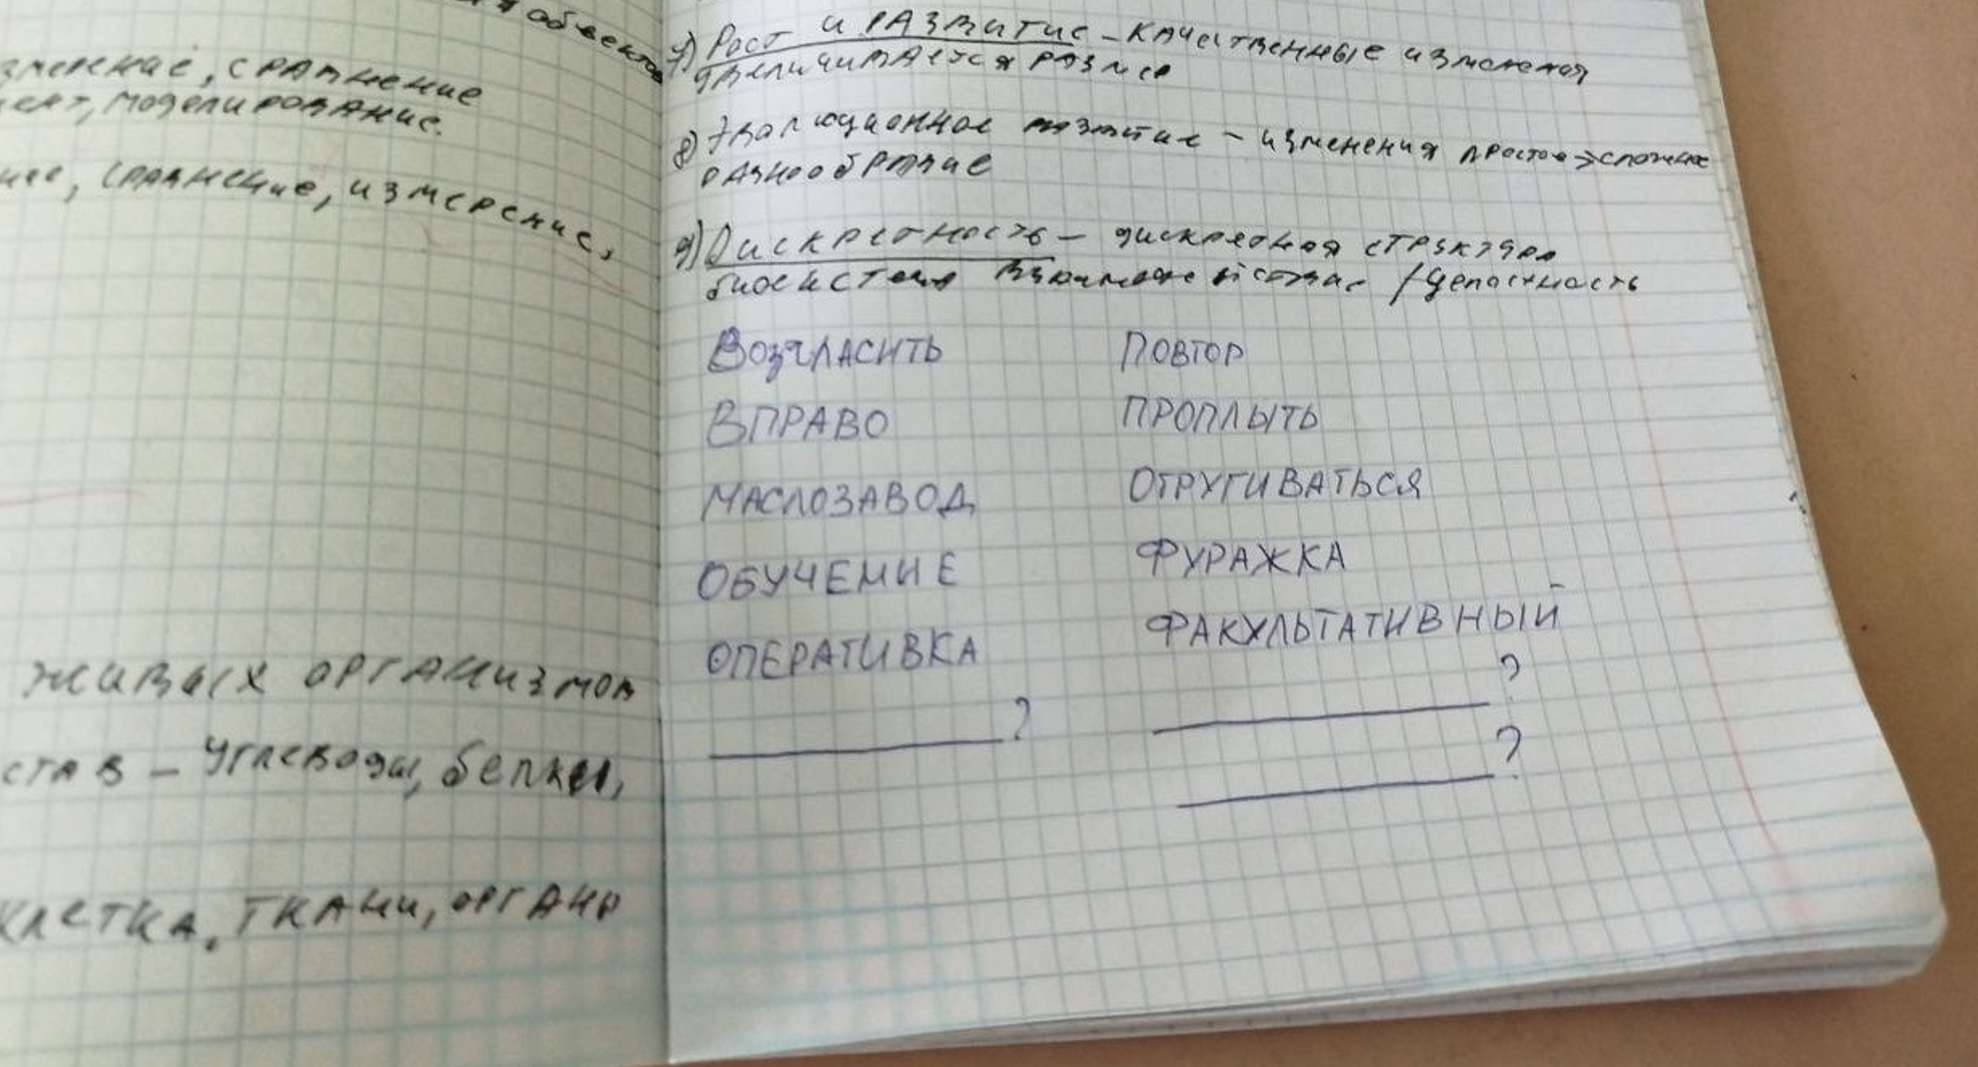 объектов
зменение, сравнение
мент, моделирование.
ние, сравнение, измерение,
живых организмов
став – углеводы, белки,
клетка, ткани, органы
7) Рост и развитие – качественные изменения
увеличивается размер
8) Эволюционное развитие – изменения простое → сложное
разнообразие
9) Дискретность – дискретная структура
биосистема / целостность
ВОЗГЛАСИТЬ
ВПРАВО
МАСЛОЗАВОД
ОБУЧЕНИЕ
ОПЕРАТИВКА
?
ПОВТОР
ПРОПЛЫТЬ
ОТРУГИВАТЬСЯ
ФУРАЖКА
ФАКУЛЬТАТИВНЫЙ
?
?